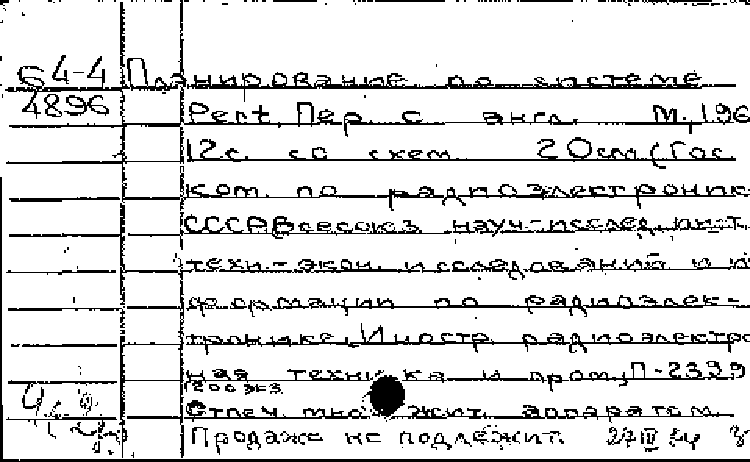 Б4-4 Планирование по системе
4896 Pert. Пер. с англ. М., 196
12с. со схем. 20см (Гос.
ком. по радиоэлектроник
СССР. Всесоюз. науч-исслед. инст.
техн-экон. исследований и и
формации по радиоэлек-
тронике. Иностр. радиоэлектро
ная техника и пром., П-2339
200 экз
Отпеч. множит. аппаратом.
Продаже не подлежит. 27 III